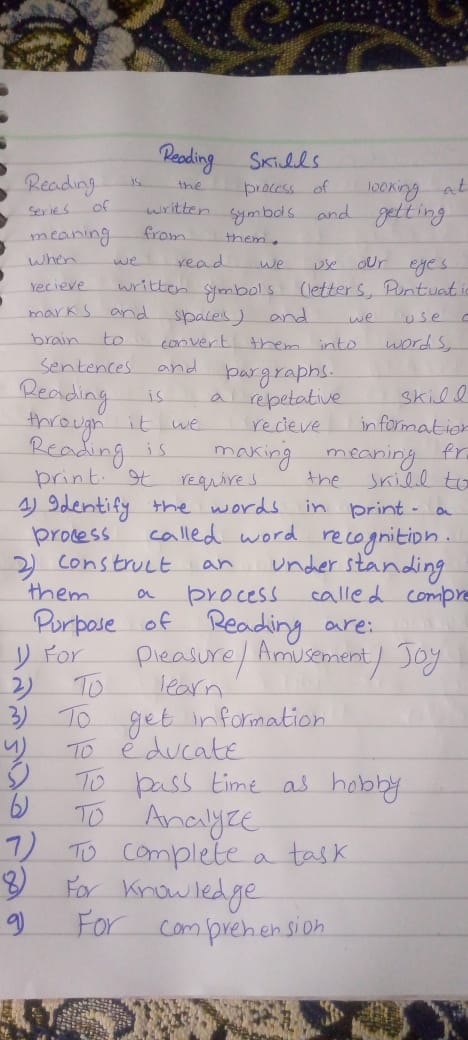 Reading Skills
Reading is the process of looking at
series of written symbols and getting
meaning from them.
When we read we use our eyes
recieve written symbols (letters, Puntuati
marks and spaces) and we use
brain to convert them into words,
Sentences and pargraphs.
Reading is a repetative skill
through it we recieve information
Reading is making meaning fr
print. It requires the skill to
1) Identify the words in print - a
process called word recognition.
2) construct an understanding
them a process called compre
Purpose of Reading are:
1) For Pleasure/Amusement/Joy
2) To learn
3) To get information
4) To educate
5) To pass time as hobby
6) To Analyze
7) To complete a task
8) For Knowledge
9) For comprehension